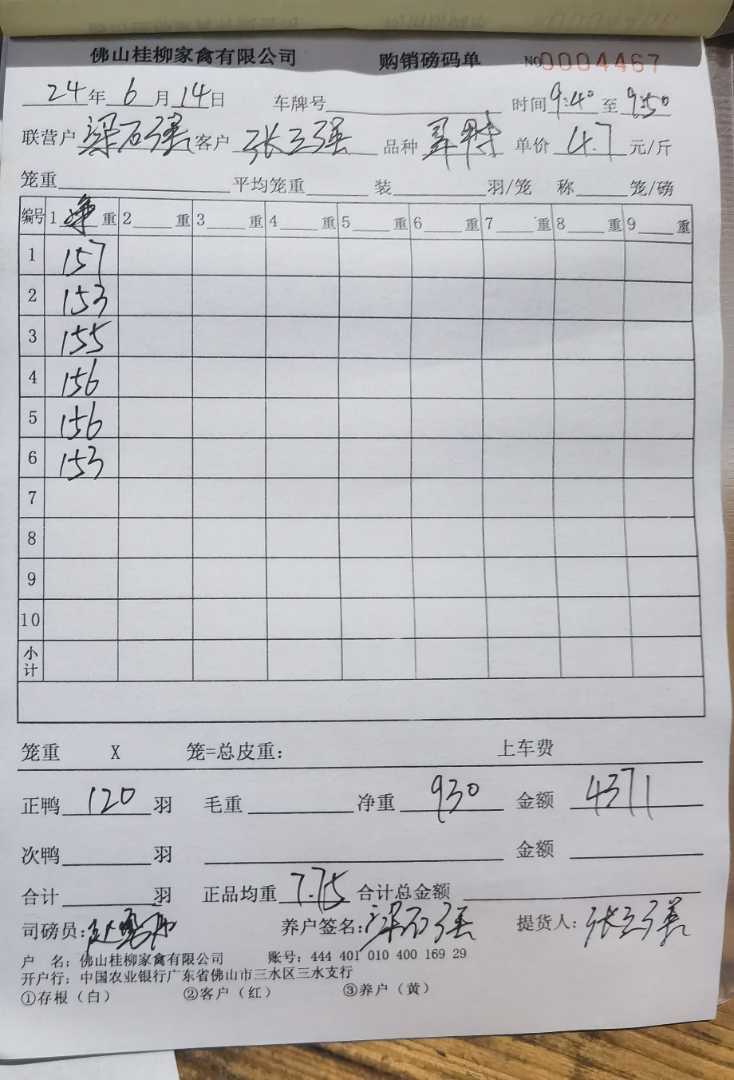 佛山桂柳家禽有限公司 购销磅码单 NO 0004467
24年 6月 14日 车牌号 时间 9:40 至 9:50
联营户 梁石强 客户 张立强 品种 单价 4.7 元/斤
笼重 平均笼重 装 羽/笼 称 笼/磅
编号 1 净 重 2 重 3 重 4 重 5 重 6 重 7 重 8 重 9 重
1 157
2 153
3 155
4 156
5 156
6 153
7
8
9
10
小计
笼重 X 笼=总皮重: 上车费
正鸭 120 羽 毛重 净重 930 金额 4371
次鸭 羽 金额
合计 羽 正品均重 7.75 合计总金额
司磅员: 养户签名: 梁石强 提货人: 张立强
户 名: 佛山桂柳家禽有限公司 账号: 444 401 010 400 169 29
开户行: 中国农业银行广东省佛山市三水区三水支行
①存根(白) ②客户(红) ③养户(黄)